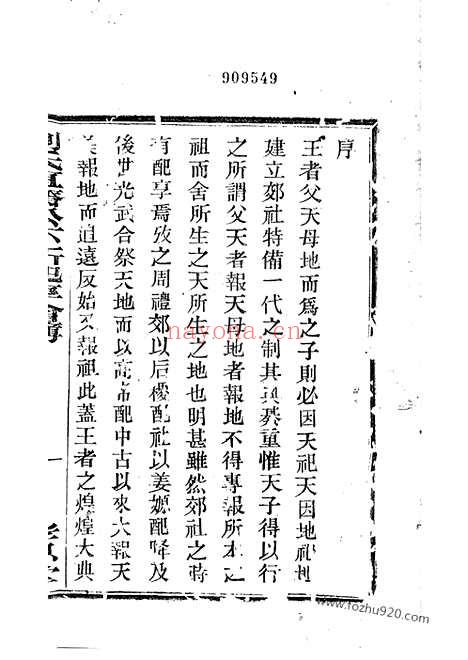 909549
序
王者父天母地而爲之子則必因天祀天因地祀
建立郊社特備一代之制其典綦重惟天子得以行
之所謂父天者報天母地者報地不得專報所本之
祖而舍所生之天所生之地也明甚雖然郊社之時
有配享焉攷之周禮郊以后稷配社以姜嫄配降及
後世光武合祭天地而以高帝配中古以來大報天
報地而追遠反始又報祖此蓋王者之煌煌大典
一
nayona.cn
www.fozhu920.com